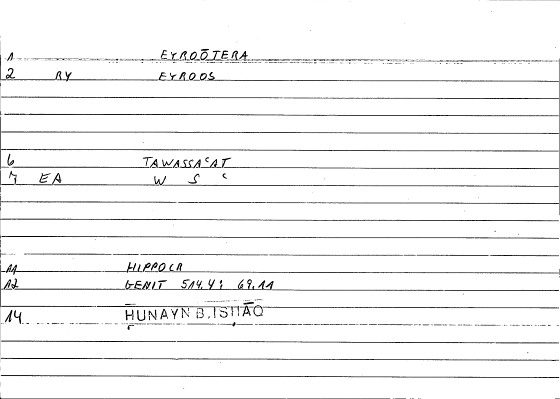 1 EYROŌTERA
2 RY EYROOS
6 TAWASSAʿAT
7 EA W S ʿ
11 HIPPOCR
12 GENIT 514.4; 69.11
14 ḤUNAYN B. ISḤĀQ